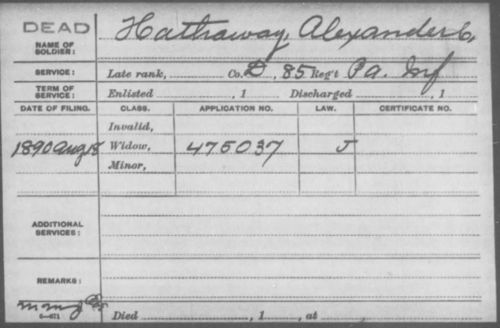 DEAD
NAME OF SOLDIER: Hathaway, Alexander C.
SERVICE: Late rank, Co. D, 85 Reg't Pa. Inf
TERM OF SERVICE: Enlisted , 1 Discharged , 1
DATE OF FILING. CLASS. APPLICATION NO. LAW. CERTIFICATE NO.
Invalid,
1890 Aug 18 Widow, 475037 J
Minor,
ADDITIONAL SERVICES:
REMARKS:
6-671 Died , 1 , at ,